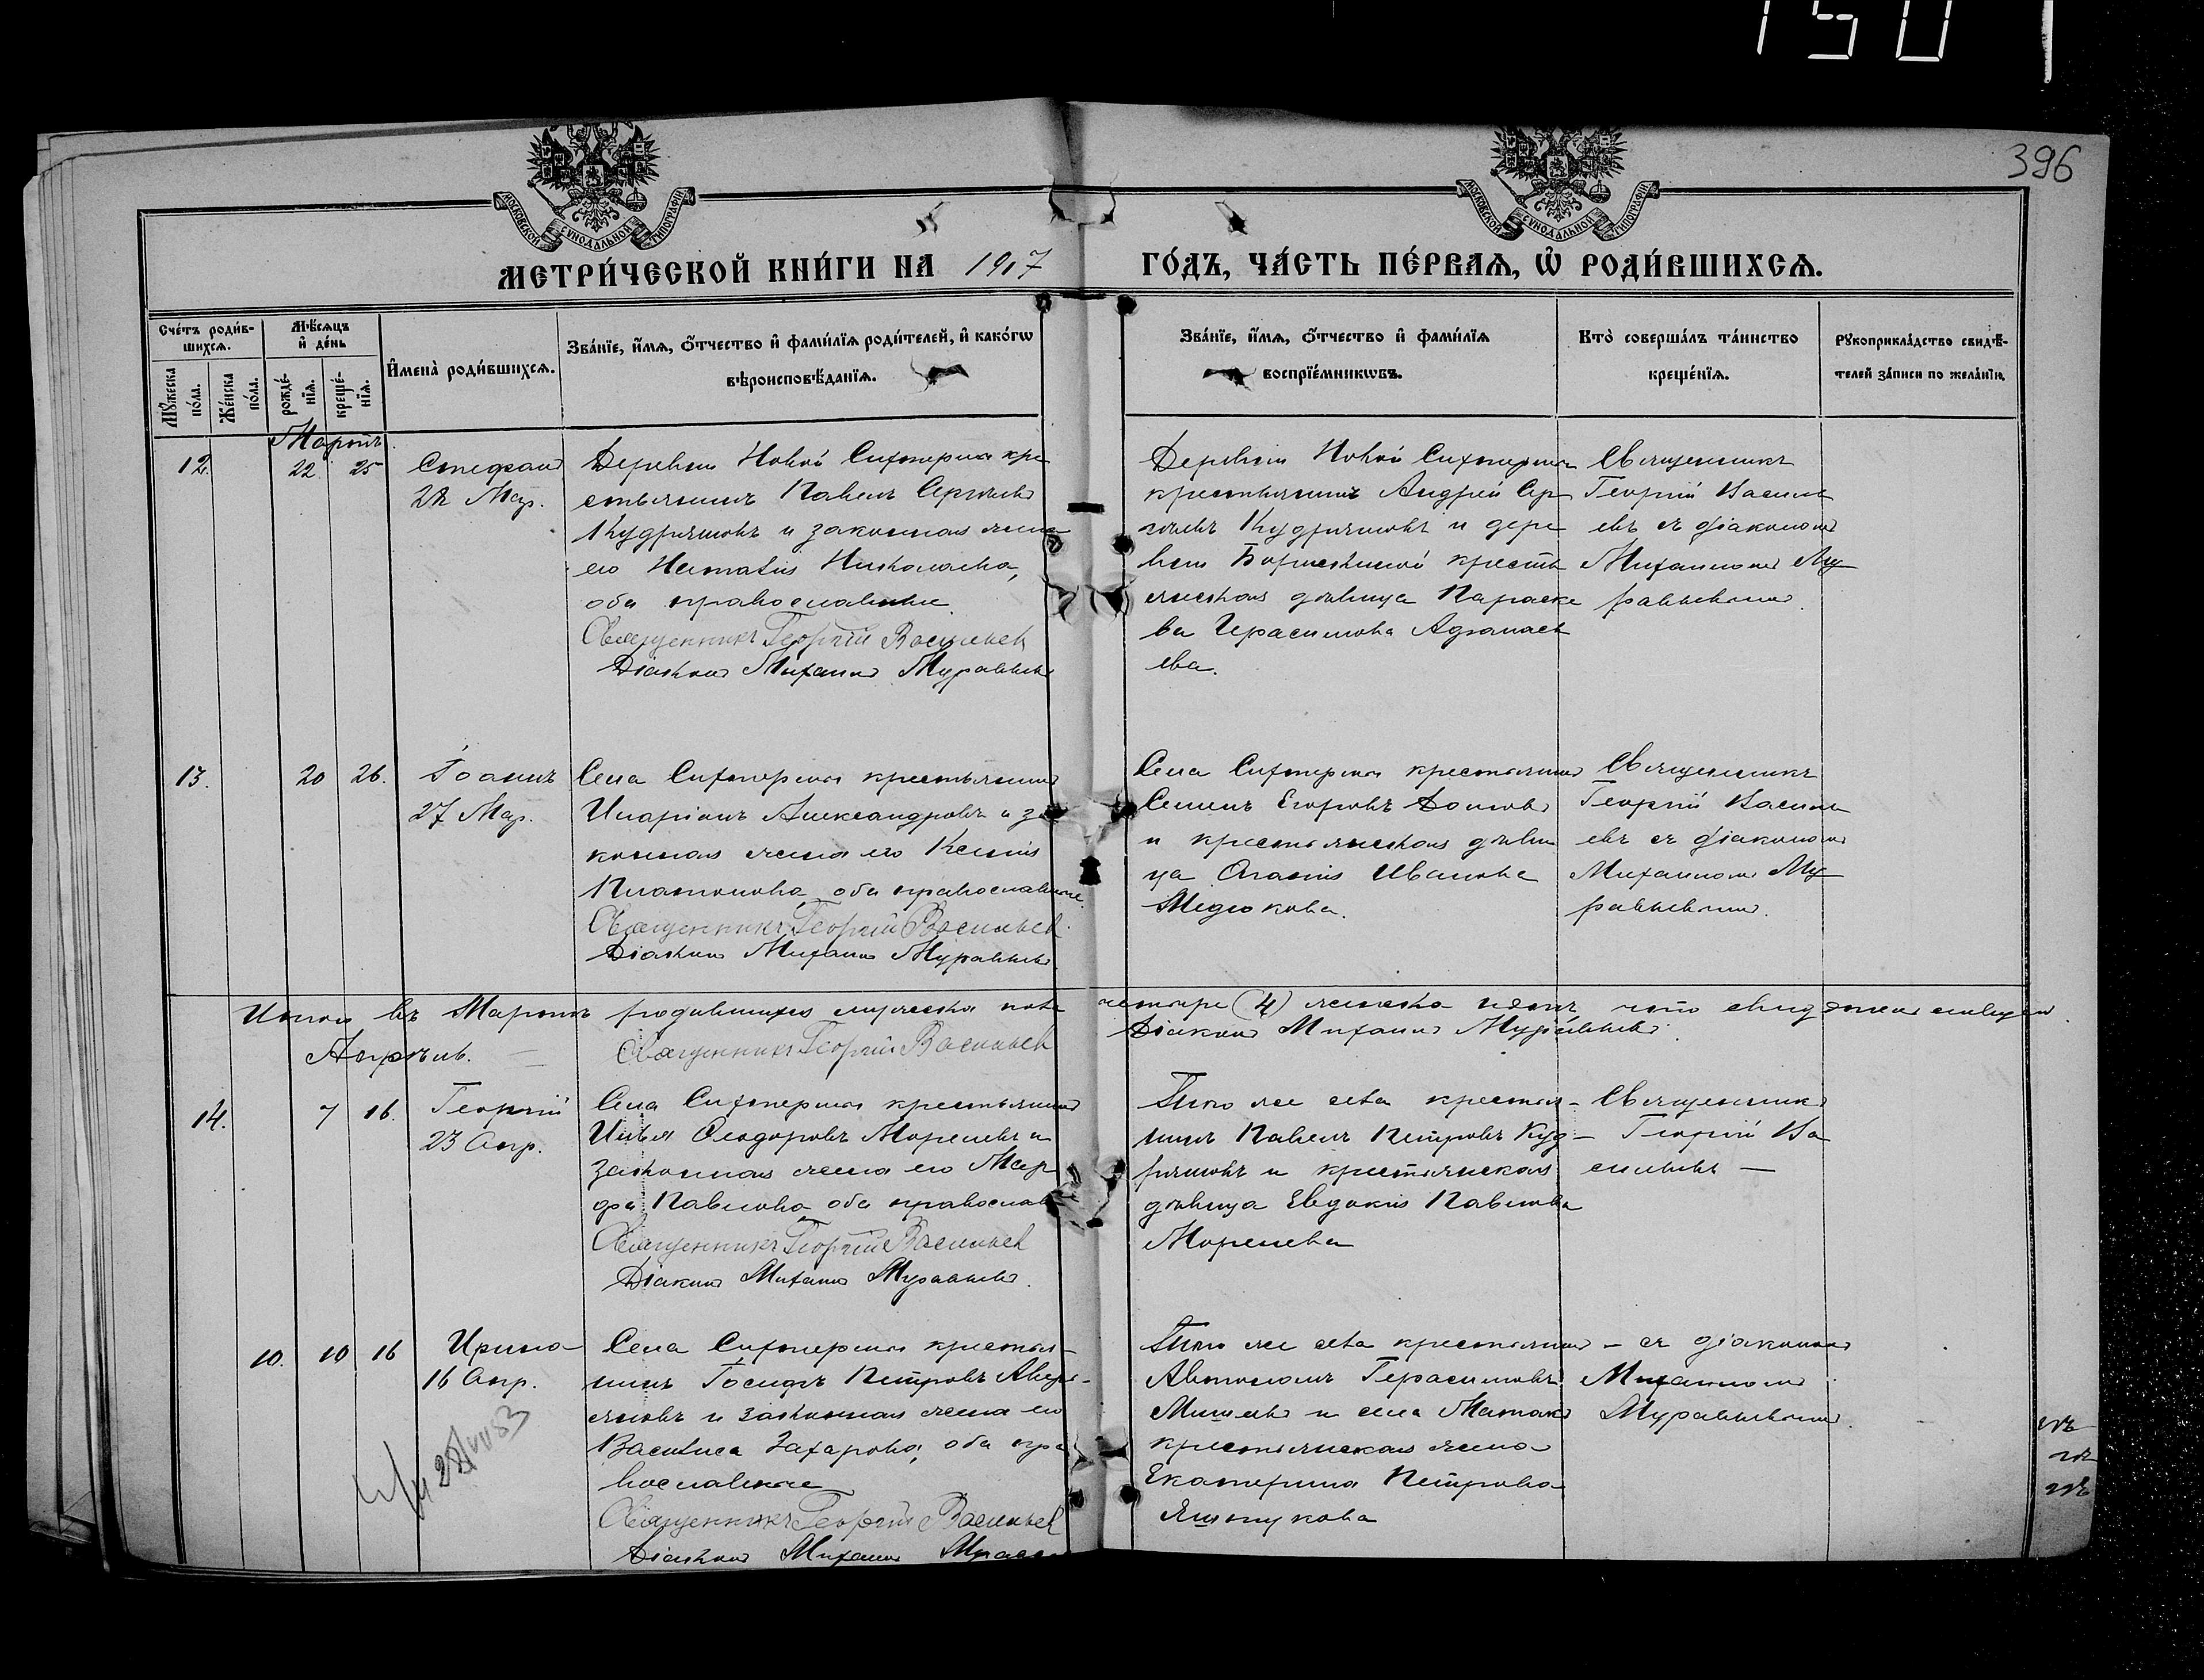 1501
396
МОСКОВСКОЙ СУНОДАЛЬНОЙ ТИПОГРАФІИ
МОСКОВСКОЙ СУНОДАЛЬНОЙ ТИПОГРАФІИ
МЕТРИ́ЧЕСКОЙ КНИ́ГИ НА 1917 ГО́ДЪ, ЧА́СТЬ ПЕ́РВАѦ, Ѡ҆ РОДИ́ВШИХСѦ.
Сче́тъ роди́в-
шихсѧ.
Мꙋ́жеска по́ла.
Же́нска по́ла.
Мѣ́сѧцъ и҆ де́нь
рожде́-нїѧ.
креще́-нїѧ.
И҆мена̀ роди́вшихсѧ.
Зва́нїе, и҆́мѧ, ѻ҆́тчество и҆ фами́лїѧ роди́телей, и҆ како́гѡ
вѣроисповѣ́данїѧ.
Зва́нїе, и҆́мѧ, ѻ҆́тчество и҆ фами́лїѧ
воспрїе́мникѡвъ.
Кто̀ соверша́лъ та́инство
креще́нїѧ.
Рꙋкоприкла́дство свидѣ́-
телей за́писи по жела́нїю.
Мартъ.
12. 22 25 Стефанъ
22 Мар.
Деревни Новой Сихтерма кре
стьянинъ Павелъ Сергѣевъ
Кудряшовъ и законная жена
его Наталія Николаева,
оба православные.
Священникъ Георгій Васильев
Діаконъ Михаилъ Муравьевъ
Деревни Новой Сихтерма
крестьянинъ Андрей Сер
гѣевъ Кудряшовъ и дере
вни крестъ
янская дѣвица Параске
ва Герасимова Афанась
ева.
Священникъ
Георгій Василь
евъ съ діакономъ
Михаиломъ Му
равьевымъ.
13. 20 26. Іоаннъ
27 Мар.
Села Сихтерма крестьянинъ
Иларіонъ Александровъ и за
конная жена его Ксенія
Платонова, оба православные.
Священникъ Георгій Васильев
Діаконъ Михаилъ Муравьевъ
Села Сихтерма крестьянинъ
Семенъ Егоровъ
и крестьянская дѣви
ца Агафія Иванова
Медюкова.
Священникъ
Георгій Василь
евъ съ діакономъ
Михаиломъ Му
равьевымъ.
Итого въ Мартѣ родившихся мужеска пола четыре (4) женска пять, что
Священникъ Георгій Васильев
Діаконъ Михаилъ Муравьевъ.
Апрѣль.
14. 7 16. Георгій
23 Апр.
Села Сихтерма крестьянинъ
Илья Ѳеодоровъ Мореневъ и
законная жена его Мар
фа Павлова оба православ
Священникъ Георгій Васильев
Діаконъ Михаилъ Муравьевъ.
Того же села крестья-
нинъ Павелъ Петровъ Куд-
ряшовъ и крестьянская
дѣвица Евдокія Павлова
Моренева
Священникъ
Георгій Ва
сильевъ —
10. 10 16 Ирина
16 Апр.
Села Сихтерма крестья-
нинъ Іосифъ Петровъ Авер-
яновъ и законная жена его
Василиса Захарова, оба пра
вославные
Священникъ Георгій Васильев
Діаконъ Михаилъ
Того же села крестьянинъ
Автономъ Герасимовъ
и села Матакъ
крестьянская жена
Екатерина Петрова
— съ діакономъ
Михаиломъ
Муравьевымъ.